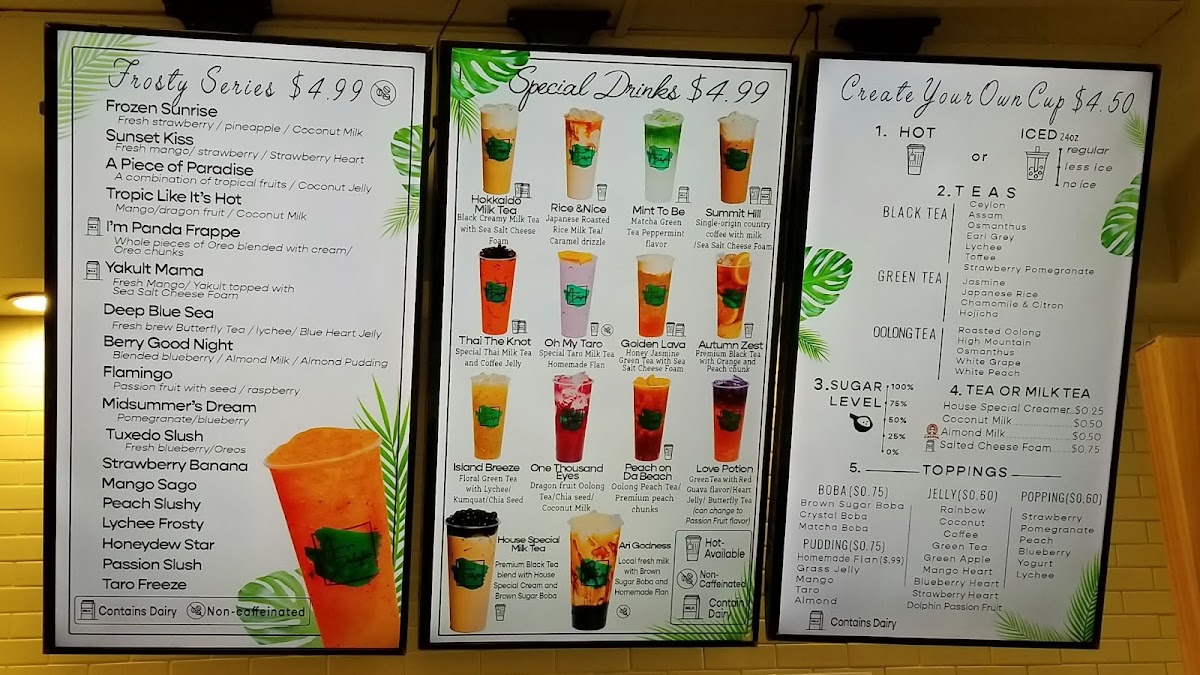 Frosty Series $4.99
Frozen Sunrise
Fresh strawberry / pineapple / Coconut Milk
Sunset Kiss
Fresh mango/ strawberry / Strawberry Heart
A Piece of Paradise
A combination of tropical fruits / Coconut Jelly
Tropic Like It's Hot
Mango/dragon fruit / Coconut Milk
I'm Panda Frappe
Whole pieces of Oreo blended with cream/
Oreo chunks
Yakult Mama
Fresh Mango/ Yakult topped with
Sea Salt Cheese Foam
Deep Blue Sea
Fresh brew Butterfly Tea / lychee/ Blue Heart Jelly
Berry Good Night
Blended blueberry / Almond Milk / Almond Pudding
Flamingo
Passion fruit with seed / raspberry
Midsummer's Dream
Pomegranate/blueberry
Tuxedo Slush
Fresh blueberry/Oreos
Strawberry Banana
Mango Sago
Peach Slushy
Lychee Frosty
Honeydew Star
Passion Slush
Taro Freeze
Contains Dairy Non-caffeinated
Special Drinks $4.99
Hokkaido
Milk Tea
Black Creamy Milk Tea
with Sea Salt Cheese
Foam
Rice &Nice
Japanese Roasted
Rice Milk Tea/
Caramel drizzle
Mint To Be
Matcha Green
Tea Peppermint
flavor
Summit Hill
Single-origin country
coffee with milk
/Sea Salt Cheese Foam
Thai The Knot
Special Thai Milk Tea
and Coffee Jelly
Oh My Taro
Special Taro Milk Tea
Homemade Flan
Golden Lava
Honey Jasmine
Green Tea with Sea
Salt Cheese Foam
Autumn Zest
Premium Black Tea
with Orange and
Peach chunk
Island Breeze
Floral Green Tea
with Lychee/
Kumquat/Chia Seed
One Thousand
Eyes
Dragon fruit Oolong
Tea/Chia seed/
Coconut Milk
Peach on
Da Beach
Oolong Peach Tea/
Premium peach
chunks
Love Potion
Green Tea with Red
Guava flavor/Heart
Jelly/ Butterfly Tea
(can change to
Passion Fruit flavor)
House Special
Milk Tea
Premium Black Tea
blend with House
Special Cream and
Brown Sugar Boba
Ari Goodness
Local fresh milk
with Brown
Sugar Boba and
Homemade Flan
Hot-
Available
Non-
Caffeinated
Contain
Dairy
Create Your Own Cup $4.50
1. HOT
or
ICED 24oz
regular
less ice
no ice
2. TEAS
BLACK TEA
Ceylon
Assam
Osmanthus
Earl Grey
Lychee
Toffee
Strawberry Pomegranate
GREEN TEA
Jasmine
Japanese Rice
Chamomile & Citron
Hojicha
OOLONG TEA
Roasted Oolong
High Mountain
Osmanthus
White Grape
White Peach
3. SUGAR
LEVEL
100%
75%
50%
25%
0%
4. TEA OR MILK TEA
House Special Creamer...$0.25
Coconut Milk...$0.50
Almond Milk...$0.50
Salted Cheese Foam...$0.75
5. TOPPINGS
BOBA($0.75)
Brown Sugar Boba
Crystal Boba
Matcha Boba
PUDDING($0.75)
Homemade Flan($.99)
Grass Jelly
Mango
Taro
Almond
JELLY($0.60)
Rainbow
Coconut
Coffee
Green Tea
Green Apple
Mango Heart
Blueberry Heart
Strawberry Heart
Dolphin Passion Fruit
POPPING($0.60)
Strawberry
Pomegranate
Peach
Blueberry
Yogurt
Lychee
Contains Dairy